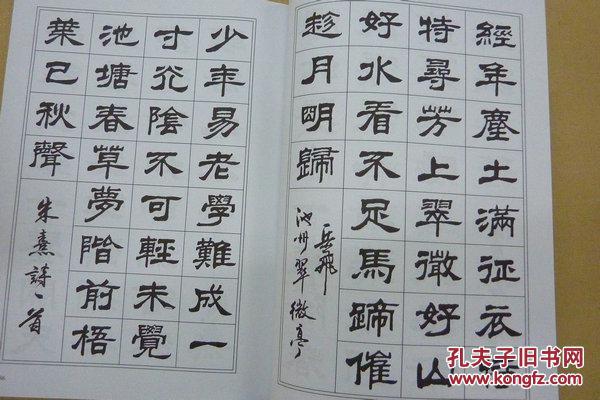 經年塵土滿征衣特
特尋芳上翠微好山
好水看不足馬蹄催
趁月明歸
岳飛
池州翠微亭
少年易老學難成一
寸光陰不可輕未覺
池塘春草夢階前梧
葉已秋聲
朱熹詩一首
孔夫子旧书网
www.kongfz.com